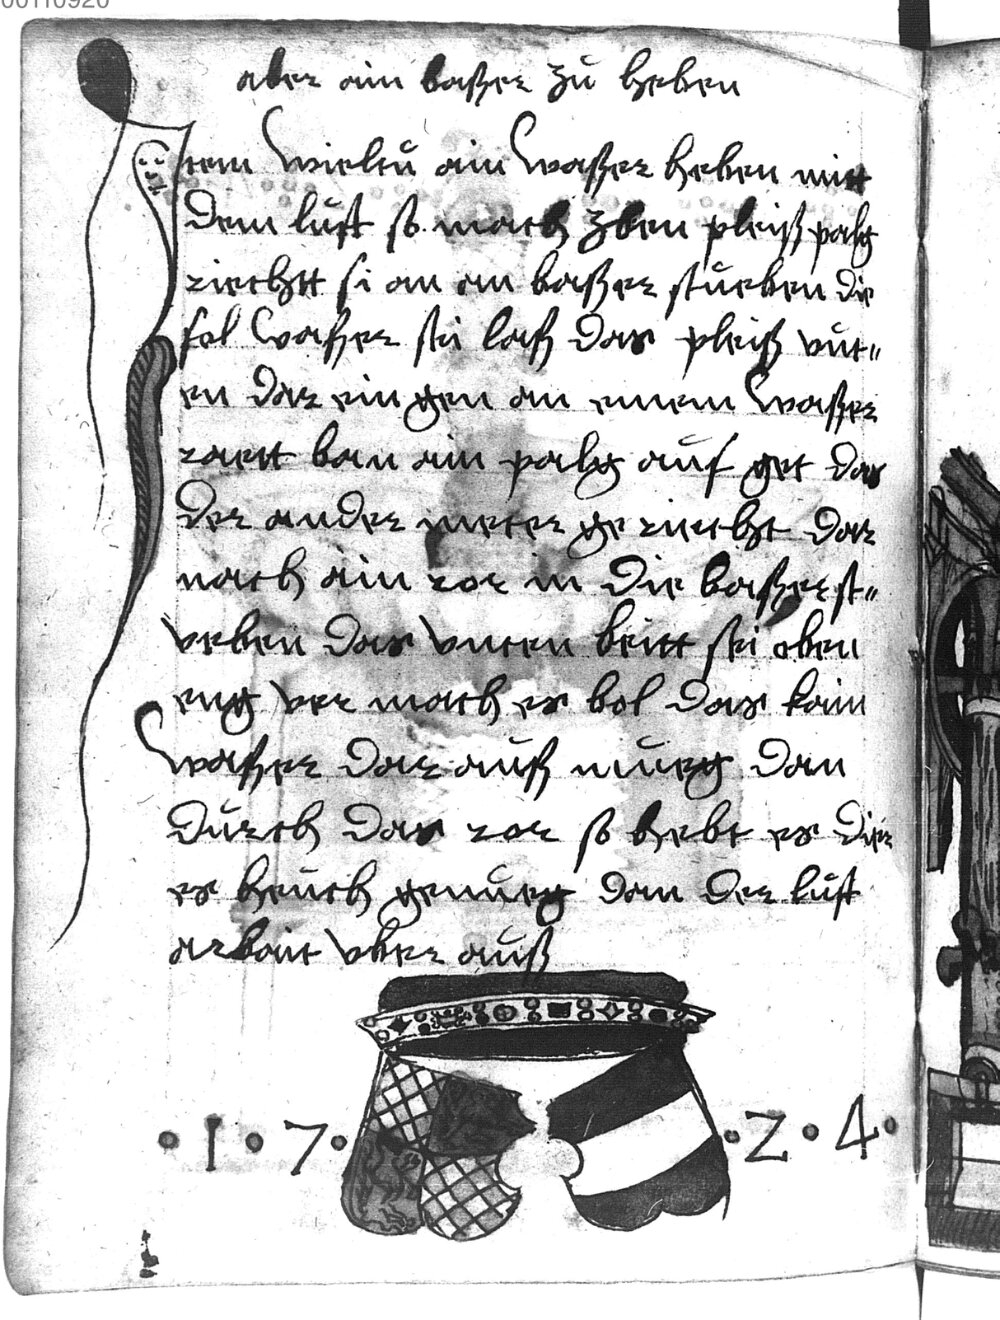 00110920
aber ain baßer zu heben
Item wieltu ain waßer heben mitt
dem luft so mach zben pleiß palg
ziechtt si an an baßer stueben die
sol waßer sei laß das pleiß vnt„
en dar ein gen an einem waßer
ban ain palg auf get das
der ander ziecht dar
nach ain ror in die baßerst„
veben das vnten breitt sei oben
eng ver mach es bol das kain
waßer dar auß mueg dan
durch das ror so hebt es dier
es hauch genueg dan der luft
arbait vber auß
• 1 • 7 • • 2 • 4 •